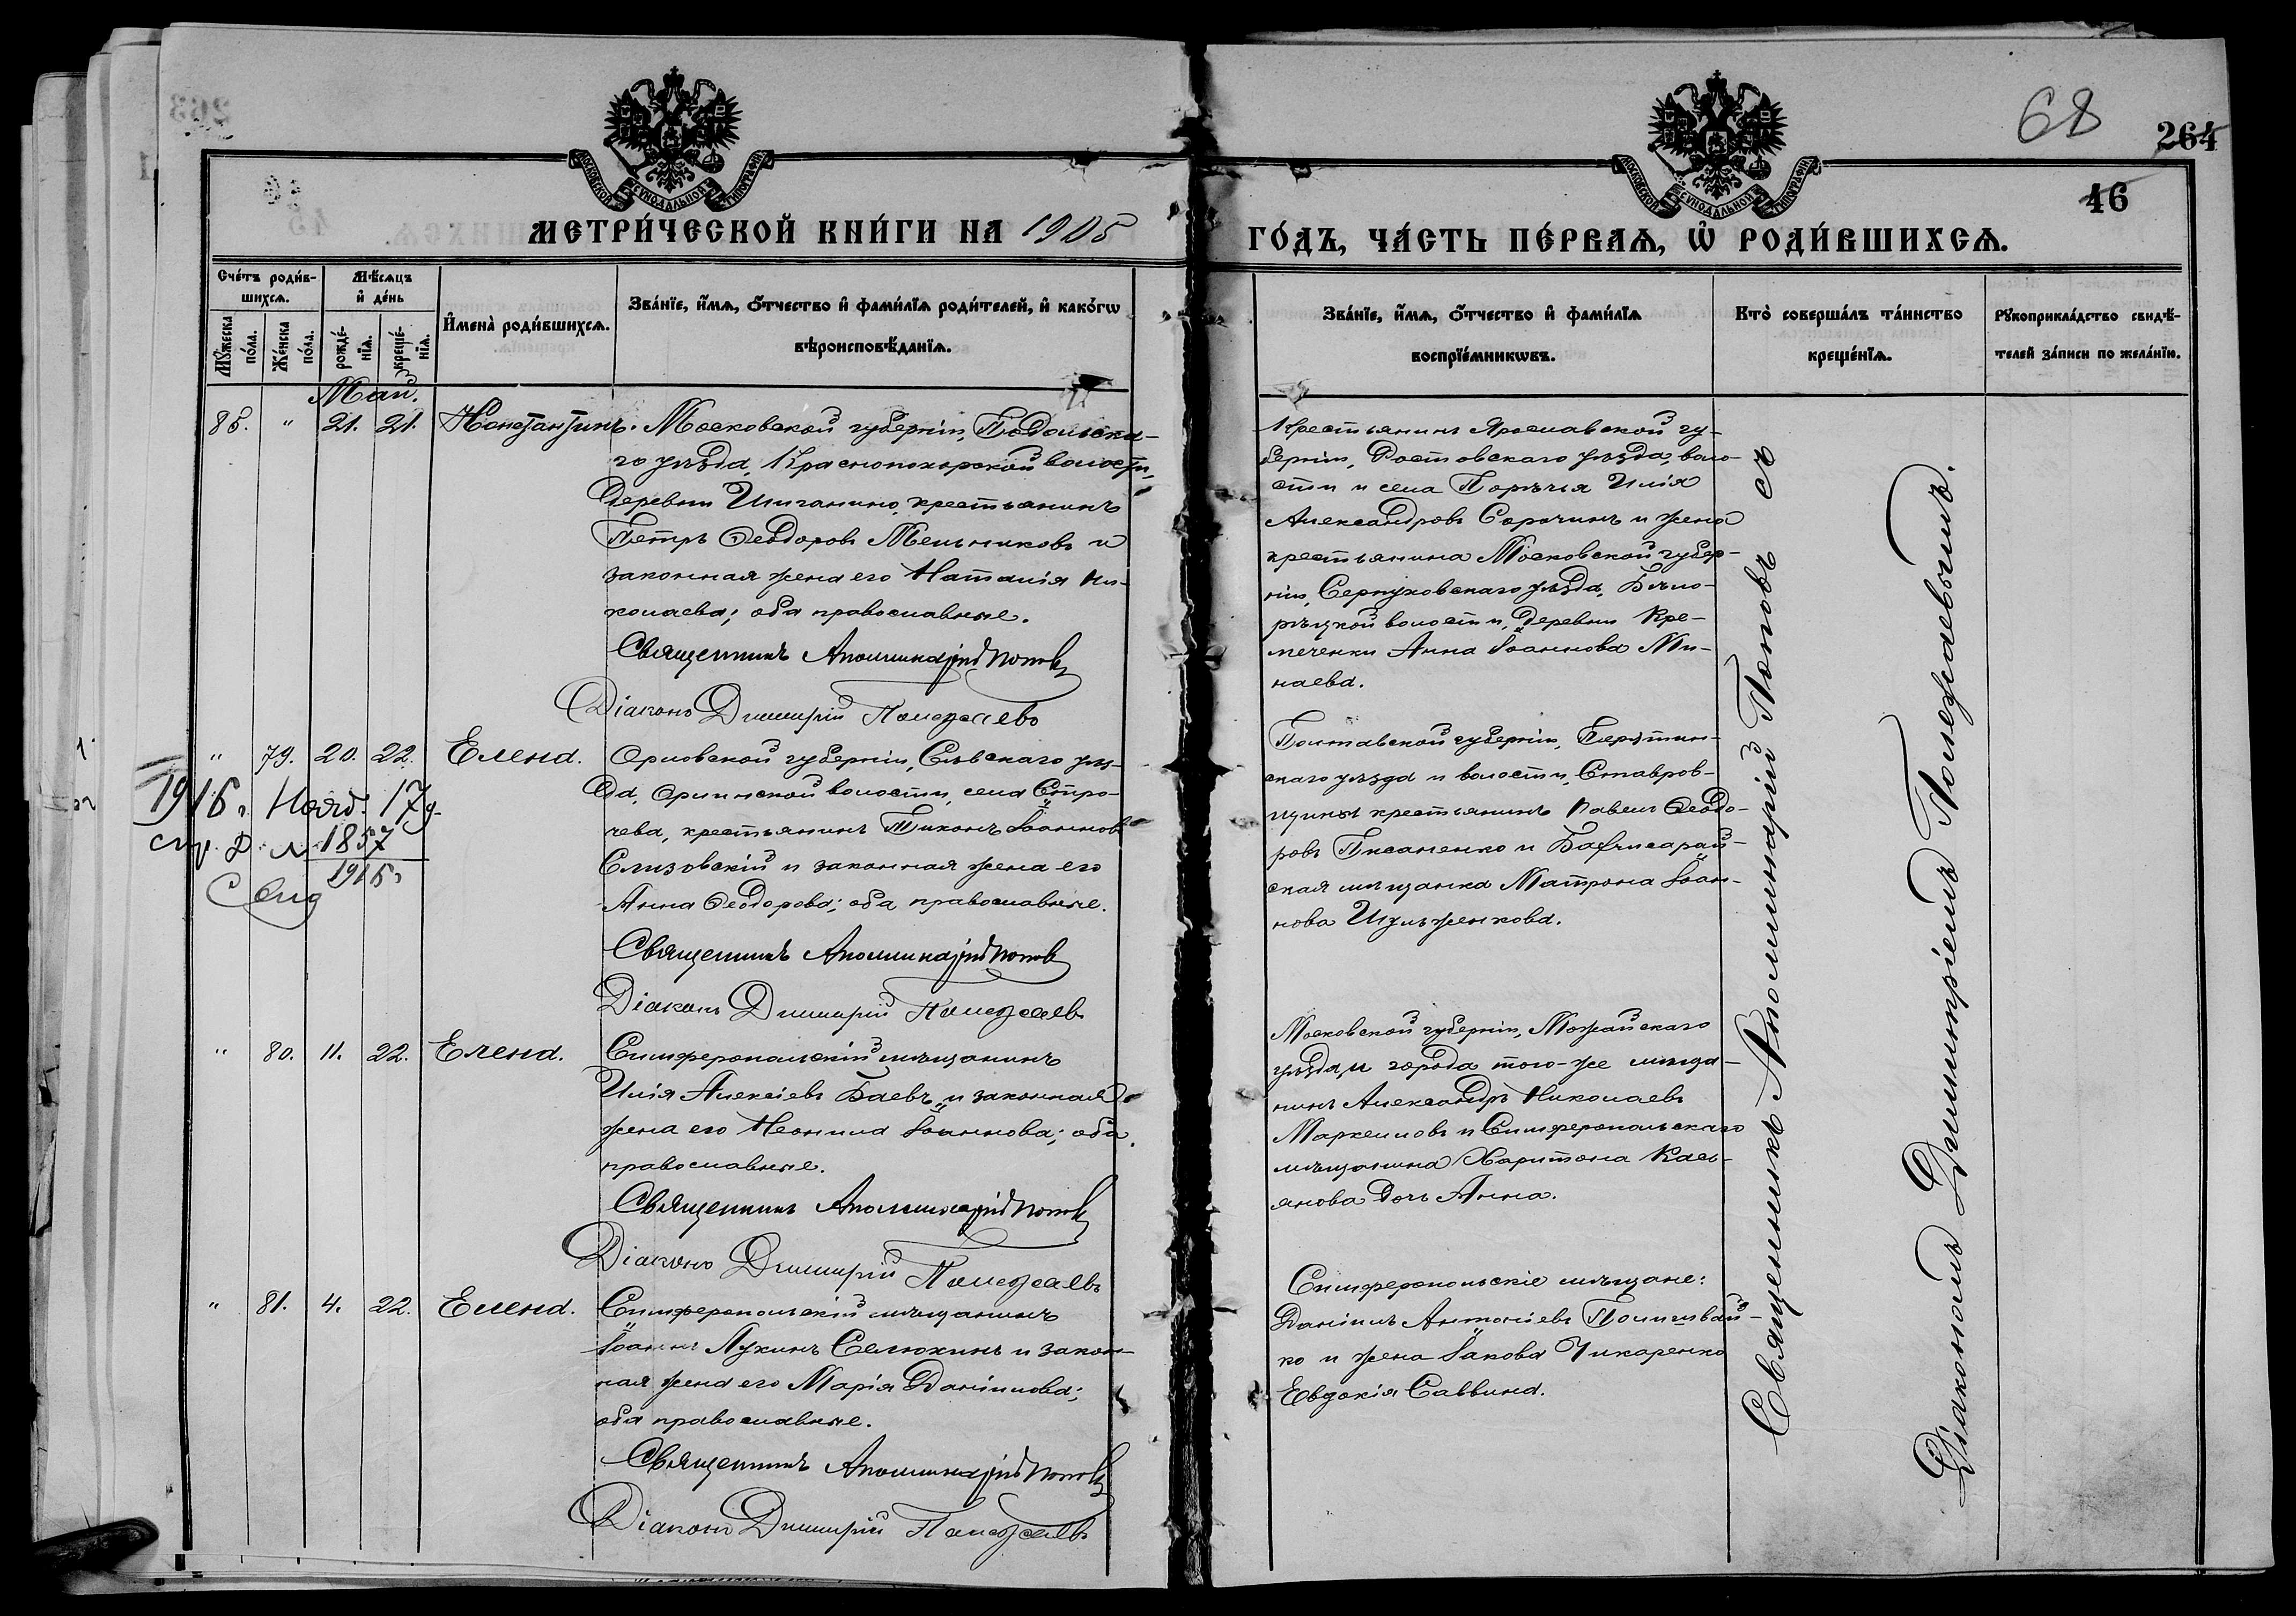 68
264
46
МОСКОВСКОЙ СѴНОДАЛЬНОЙ ТИПОГРАФІИ
МОСКОВСКОЙ СѴНОДАЛЬНОЙ ТИПОГРАФІИ
МЕТРИ́ЧЕСКОЙ КНИ́ГИ НА 1905
ГО́ДЪ, ЧА́СТЬ ПЕ́РВАѦ, Ѡ҆ РОДИ́ВШИХСѦ.
Сче́тъ роди́в-
шихсѧ.
Мꙋ́жеска по́ла.
Же́нска по́ла.
Мѣ́сѧцъ
и҆ де́нь
рожде́-нїѧ.
креще́-нїѧ.
И҆мена̀ роди́вшихсѧ.
Зва́нїе, и҆́мѧ, ѻ҆́тчество и҆ фами́лїѧ роди́телей, и҆ како́гѡ
вѣроисповѣ́данїѧ.
Зва́нїе, и҆́мѧ, ѻ҆́тчество и҆ фами́лїѧ
воспрїе́мникѡвъ.
Кто̀ соверша́лъ та́инство
креще́нїѧ.
Рꙋкоприкла́дство свидѣ́-
телей за́писи по жела́нїю.
Май.
85. " 21. 21. Константинъ.
Московской губерніи, Подольска-
го уѣзда, Краснопахорской волости,
деревни Шиганино, крестьянинъ
Петръ Ѳеодоровъ Мельниковъ и
законная жена его Наталія Ни-
колаева; оба православные.
Священникъ Аполлинарій Поповъ
Діаконъ Димитрій Полежаевъ
Крестьянинъ Ярославской гу-
берніи, Ростовскаго уѣзда, воло-
сти и села Порѣчья Илія
Александровъ Сорочинъ и жена
крестьянина Московской губер-
ніи, Серпуховскаго уѣзда, Бѣло-
рѣцкой волости, деревни Кре-
меченки Анна Іоаннова Ми-
наева.
" 79. 20. 22. Елена.
Орловской губерніи, Сѣвскаго уѣз-
да, волости, села
чева, крестьянинъ Тихонъ Іоанновъ
Слизовскій и законная жена его
Анна Ѳеодорова; оба православные.
Священникъ Аполлинарій Поповъ
Діаконъ Димитрій Полежаевъ
1916 г. Нояб. 17 д.
1857
1916 г.
Полтавской губерніи, Пирятин-
скаго уѣзда и волости, Ставров-
щины крестьянинъ Павелъ Ѳеодо-
ровъ Писаненко и Бахчисарай-
ская мѣщанка Матрона Іоан-
нова Шульженкова.
" 80. 11. 22. Елена.
Симферопольскій мѣщанинъ
Илія Алексіевъ Баевъ и законная
жена его Неонила Іоаннова; оба
православные.
Священникъ Аполлинарій Поповъ
Діаконъ Димитрій Полежаевъ
Московской губерніи, Можайскаго
уѣзда, и города того-же мѣща-
нинъ Александръ Николаевъ
Маркеловъ и Симферопольскаго
мѣщанина Харитона Касъ-
янова дочь Анна.
" 81. 4. 22. Елена.
Симферопольскій мѣщанинъ
Іоаннъ Лукинъ Селюхинъ и закон-
ная жена его Марія Даніилова;
оба православные.
Священникъ Аполлинарій Поповъ
Діаконъ Димитрій Полежаевъ
Симферопольскіе мѣщане:
Даніилъ Антоніевъ Полишвай-
ко и жена Іакова Чикаренко
Евдокія Саввина.
Священникъ Аполлинарій Поповъ съ
Діакономъ Димитріемъ Полежаевымъ.